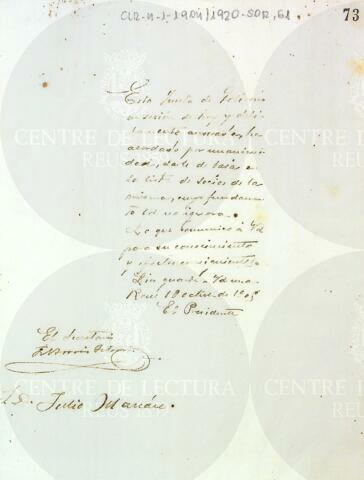 CLR-U-1-1904/1920-SOR,61
73
Esta Junta de Gobierno
en sesion de hoy y debi-
damente ha
acordado por unanimi-
dad, darle de baja en
la lista de socios de la
misma, cuyo fundamen-
to Vd no ignora.
Lo que comunico á Vd
para su conocimiento
y efectos consiguientes.
Dios guarde a Vd ms. as.
Reus 19 de 190
El Presidente
El Secretario
S. D. Julio
CENTRE DE LECTURA
REUS 1859